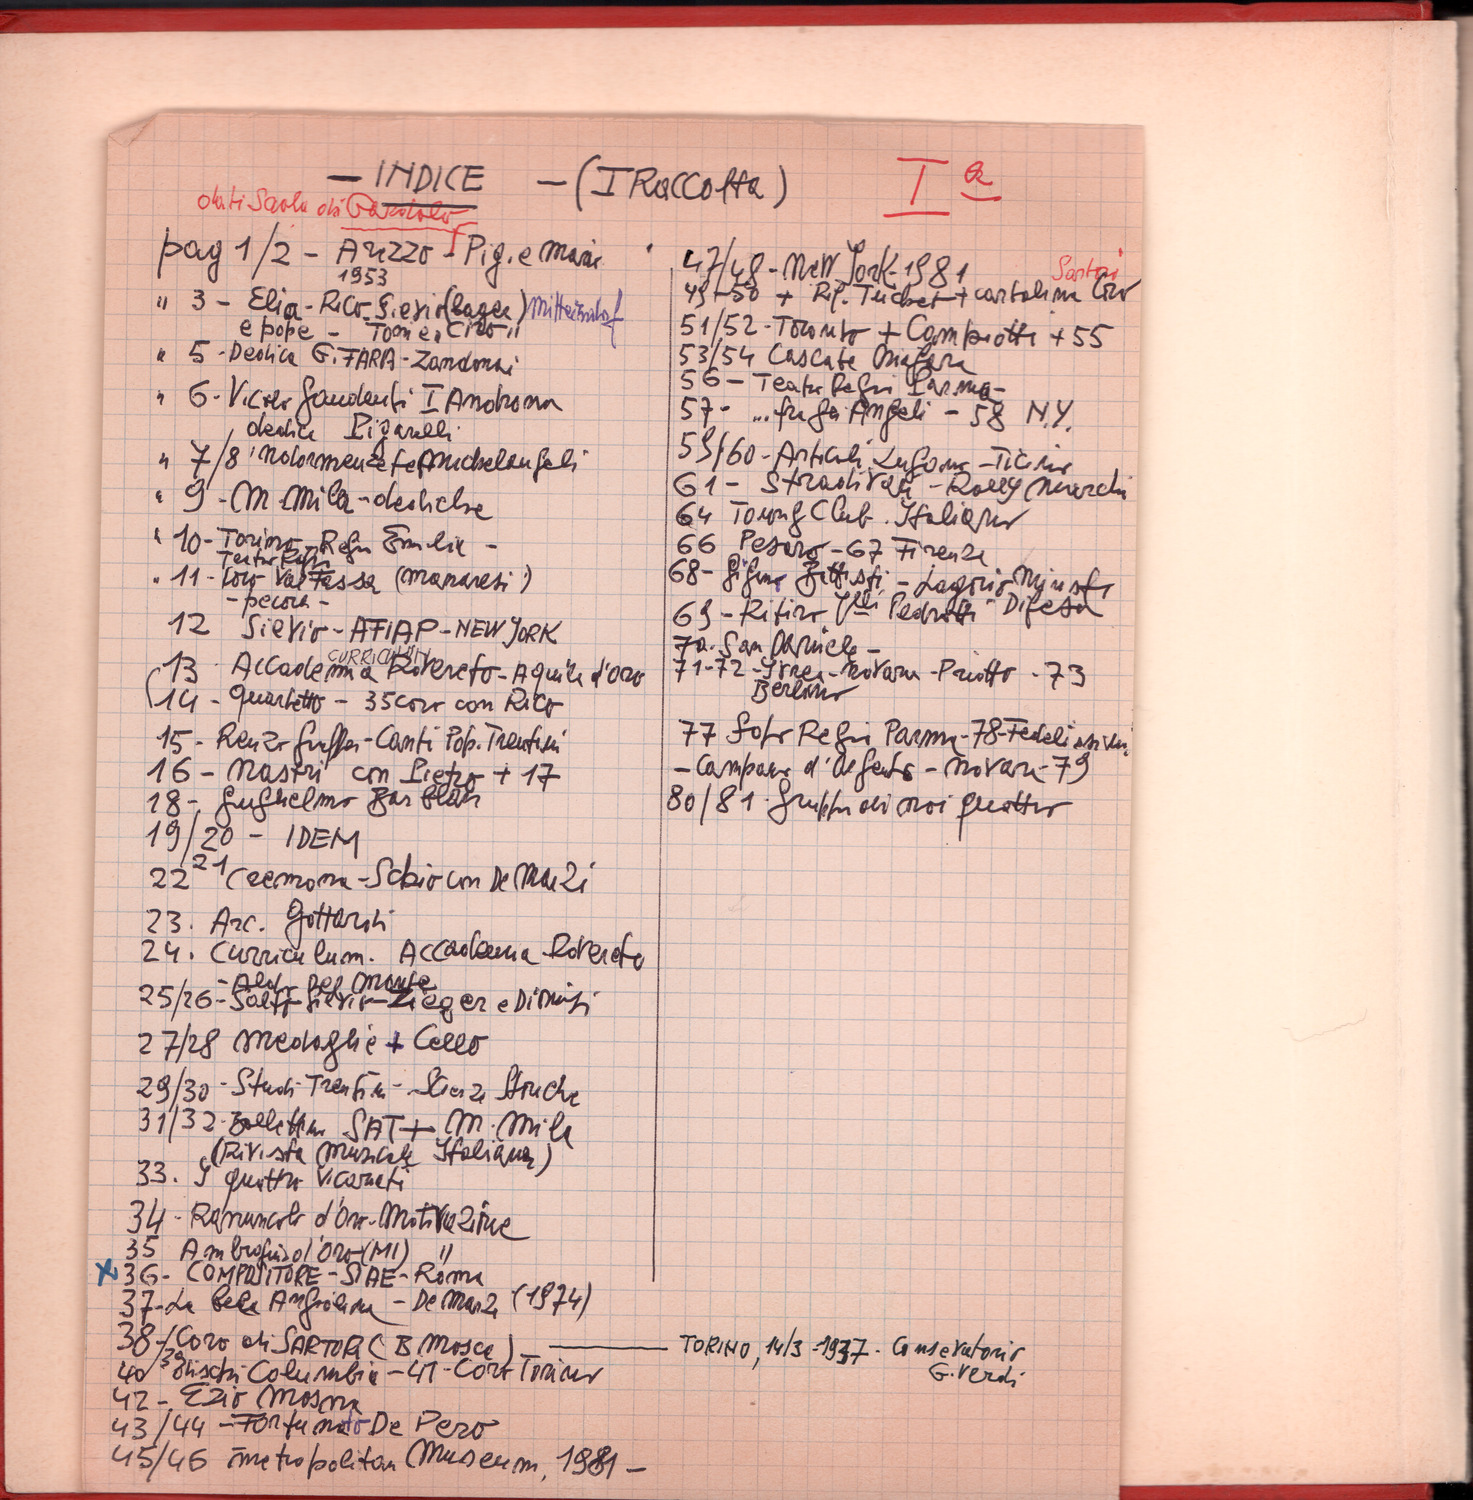 - INDICE - (I Raccolta) I a
dati Scola di Gardolo
pag 1/2 - Arezzo - Pig. e Mari
1953
" 3 - Elia - Rico - Silvio (lager) Mitterndorf
e pope - Torner, Ciro "
" 5 - Dedica GiFARA - Zandonai
" 6 - Vicer Gaudenti I Androna
dedica Pigarelli
" 7/8 Indormenzete Michelangeli
" 9 - M. Mila - dediche
" 10 - Torino - Regu Emilia -
Teatro Regu
" 11 - Coro Val Fassa (Manaresi)
- pecora -
12 Silvio - AFIAP - NEW YORK
CURRICULUM
13 Accademia Rovereto - Aquila d'oro
14 - Quartetto - 35 coro con Rico
15 - Renzo - Canti Pop. Trentini
16 - Nastri con Pietro + 17
18 - Guglielmo Barblan
19/20 - IDEM
22 21 Cremona - Schio con De Marzi
23. Arc. Gottardi
24. Curriculum. Accademia Rovereto
- Aldo Del Monte
25/26 - Silvio - Zieger e Dionisi
27/28 Medaglie + Cello
29/30 - Studi Trentini - Scienze Storiche
31/32 - Bollettino SAT + M. Mila
(Rivista Musicale Italiana)
33. I quattro Vicariati
34 - Ranuncolo d'Oro - Motivazione
35 Ambrogino d'Oro (MI) "
x 36 - COMPOSITORE - SIAE - Roma
37 - La bela Angiolina - De Marzi (1974)
38 - / Coro di SARTORI (B Mosca) — TORINO, 14/3 - 1937 - Conservatorio
39 G. Verdi
40 Dischi Columbia - 41 - Coro Torino
42 - Ezio Mosna
43/44 - Fortunato De Pero
45/46 metropolitan Museum, 1981 -
47/48 - New York - 1981
Sartori
49-50 + Rif. Tucket + cartolina Coro
51/52 - Toronto + Campiotti + 55
53/54 Cascate Niagara
56 - Teatro Regio Parma -
57 - ... fuga Angeli - 58 N.Y.
59/60 - Articoli Lugano - Ticino
61 - Stradivari - Rolly Marchi
64 Touring Club. Italiano
66 Pesaro - 67 Firenze
68 - Gigino Battisti - Lagorio Ministr
Difesa
69 - Ritiro F.lli Pedrotti
70. San Daniele -
71-72 - Ivrea - Novara - Priotto - 73
Berlino
77 Foto Regio Parma - 78 - Fedeli
- Campane d'Argento - Novara - 79
80/81. Gruppo di noi quattro